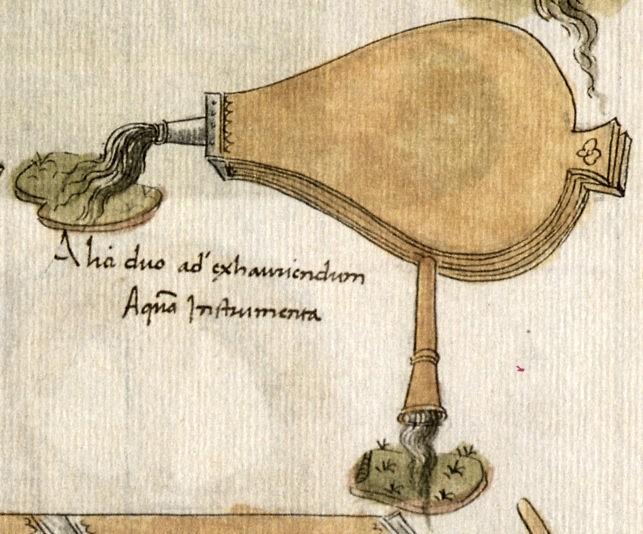 Alia duo ad exhauriendum
Aquā Instrumenta